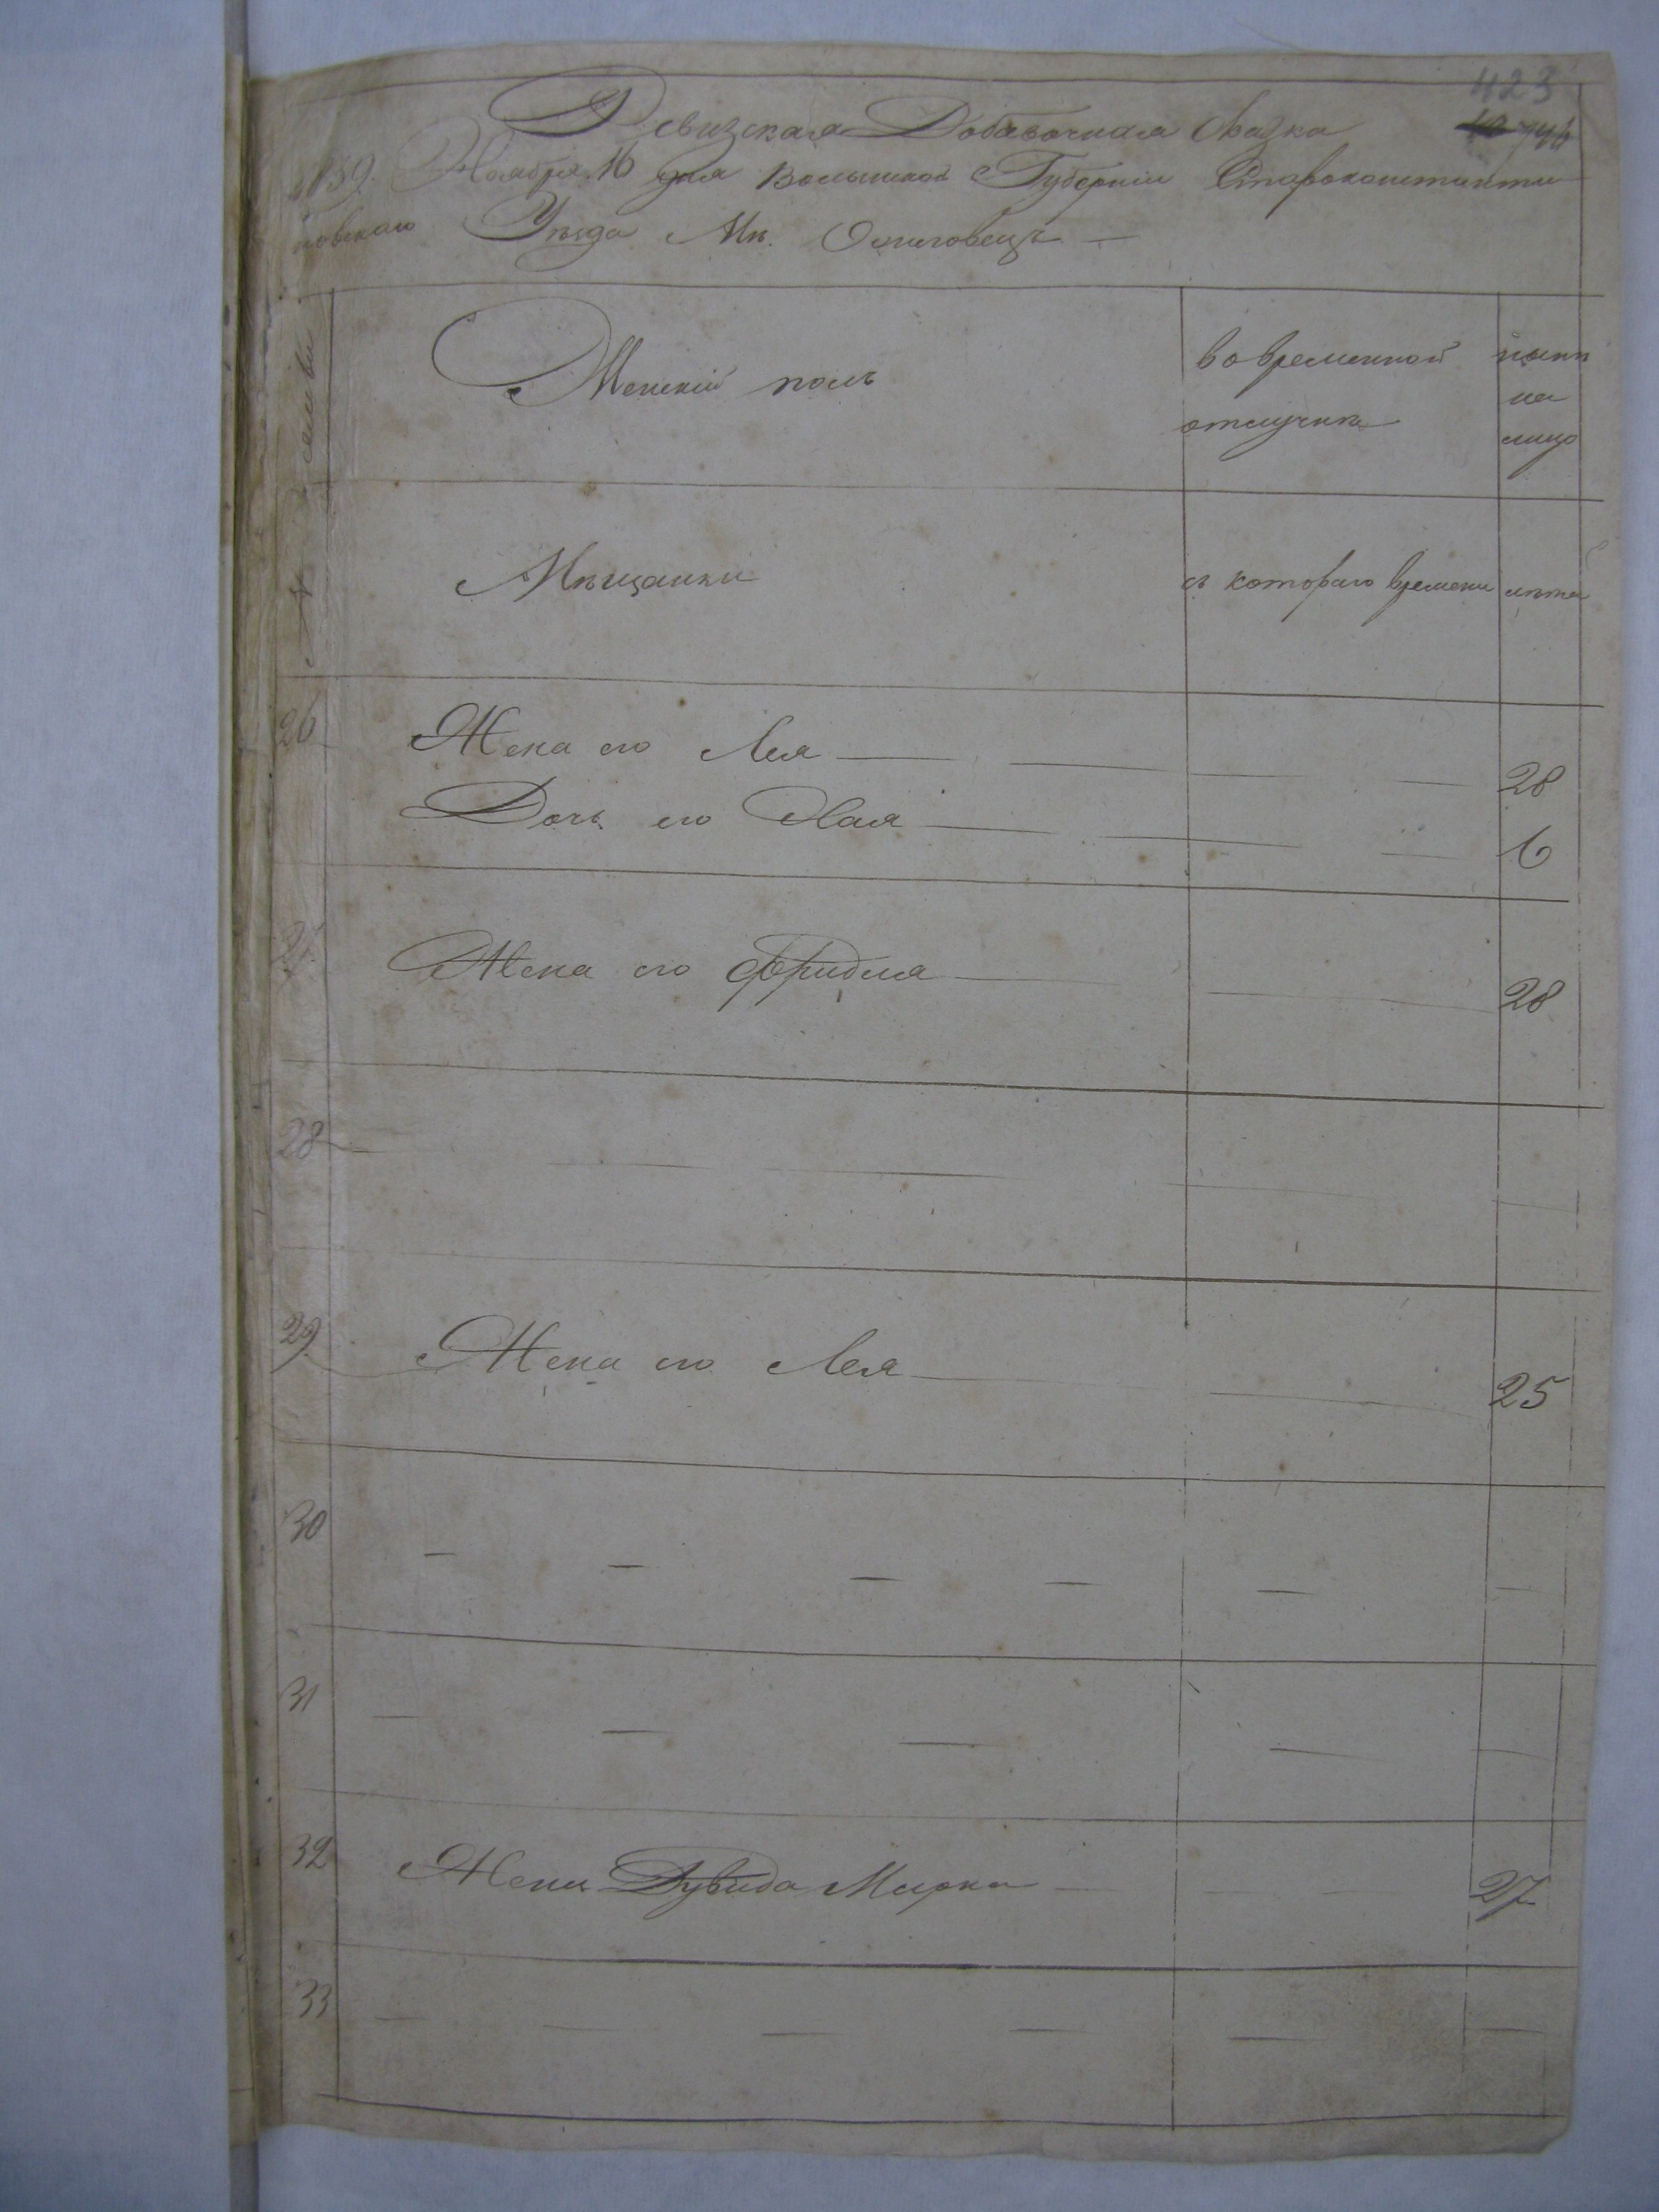 423
746
Ревизская Добавочная Сказка
1839. Ноября 16 дня Волынской Губернии Староконстанти
новскаго Уѣзда Мѣ.
семьи
Женскій полъ
во временной
отлучкѣ
нынѣ
на
лицо
Мѣщанки
съ котораго времени
лѣта
26 Жена его Лея 28
Дочь его Хая 6
Жена его Фридля 28
28
29 Жена его Лея 25
30
31
32 Жена Дувида Мирка 27
33